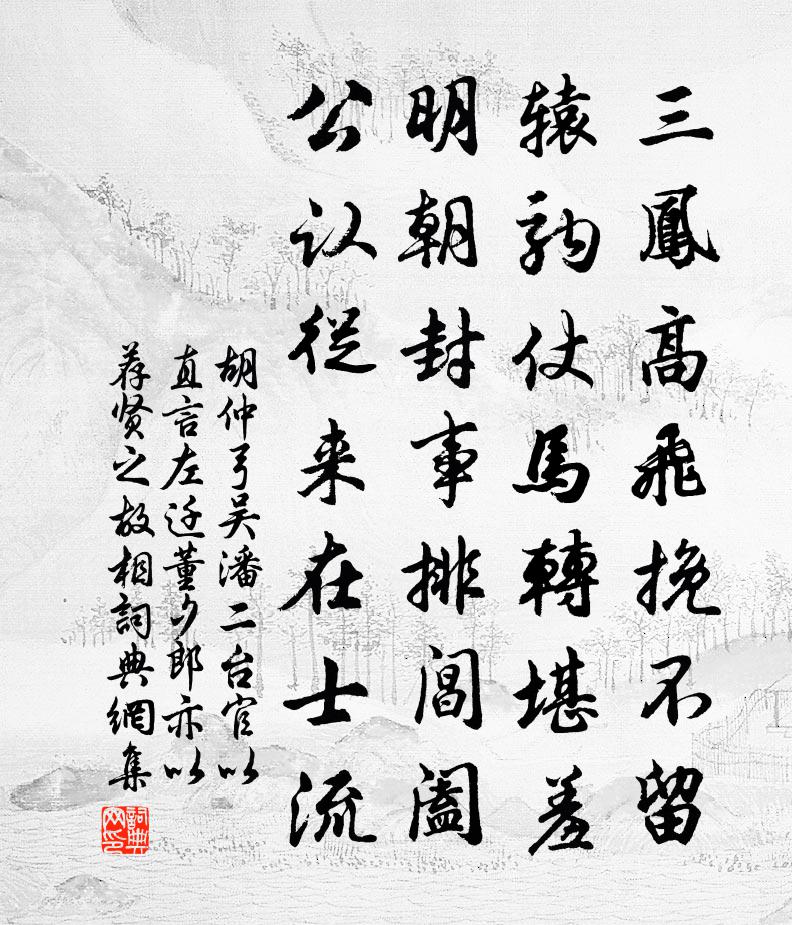 三鳳高飛挽不留
辕駒仗馬轉堪羞
明朝封事排閶闔
公议從来在士流
胡仲弓吴潘二台官以
直言左迁董夕郎亦以
荐贤之故相詞典網集
詞典网印